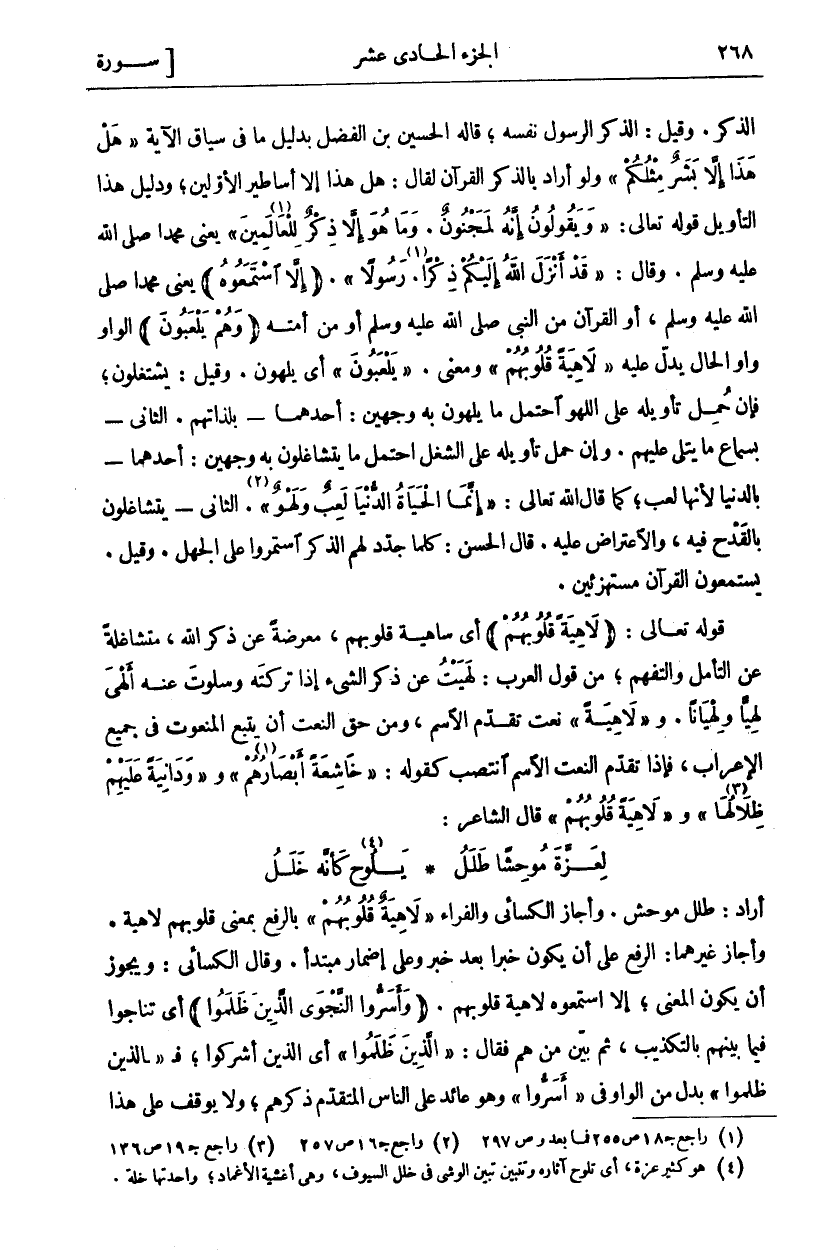 ٢٦٨ الجزء الحادى عشر [ سورة
الذكر . وقيل : الذكر الرسول نفسه ؛ قاله الحسين بن الفضل بدليل ما فى سياق الآية « هَلْ
هَذَا إِلَّا بَشَرٌ مِثْلُكُمْ » ولو أراد بالذكر القرآن لقال : هل هذا إلا أساطير الأوّلين ؛ ودليل هذا
التأويل قوله تعالى : « وَيَقُولُونَ إِنَّهُ لَمَجْنُونٌ . وَمَا هُوَ إِلَّا ذِكْرٌ لِلْعَالَمِينَ(١) » يعنى محمدا صلى الله
عليه وسلم . وقال : « قَدْ أَنْزَلَ اللهُ إِلَيْكُمْ ذِكْرًا(١) . رَسُولًا » . ﴿ إِلَّا ٱسْتَمَعُوهُ ﴾ يعنى محمدا صلى
الله عليه وسلم ، أو القرآن من النبى صلى الله عليه وسلم أو من أمته ﴿ وَهُمْ يَلْعَبُونَ ﴾ الواو
واو الحال يدلّ عليه « لَاهِيَةً قُلُوبُهُمْ » ومعنى . « يَلْعَبُونَ » أى يلهون . وقيل : يشتغلون ؛
فإن حُمِل تأويله على اللهو ٱحتمل ما يلهون به وجهين : أحدهما — بلذاتهم . الثانى —
بسماع ما يتلى عليهم . وإن حمل تأويله على الشغل احتمل ما يتشاغلون به وجهين : أحدهما —
بالدنيا لأنها لعب ؛ كما قال الله تعالى : « إِنَّمَا الْحَيَاةُ الدُّنْيَا لَعِبٌ وَلَهْوٌ(٢) » . الثانى — يتشاغلون
بالقَدْح فيه ، والٱعتراض عليه . قال الحسن : كلما جدّد لهم الذكر ٱستمروا على الجهل . وقيل .
يستمعون القرآن مستهزئين .
قوله تعالى : ﴿ لَاهِيَةً قُلُوبُهُمْ ﴾ أى ساهية قلوبهم ، معرضةً عن ذكر الله ، متشاغلةً
عن التأمل والتفهم ؛ من قول العرب : لَهَيْتُ عن ذكر الشىء إذا تركتَه وسلوتَ عنه أَلْهَى
لُهِيًّا ولِهْيَانًا . و « لَاهِيَةً » نعت تقدّم الٱسم ، ومن حق النعت أن يتبع المنعوت فى جميع
الإعراب ، فإذا تقدّم النعت الٱسم ٱنتصب كقوله : « خَاشِعَةً أَبْصَارُهُمْ(١) » و « وَدَانِيَةً عَلَيْهِمْ
ظِلَالُهَا(٣) » و « لَاهِيَةً قُلُوبُهُمْ » قال الشاعر :
لِعَزَّةَ مُوحِشًا طَلَلُ * يَلُوح(٤) كَأنَّه خَلَلُ
أراد : طلل موحش . وأجاز الكسائى والفراء « لَاهِيَةٌ قُلُوبُهُمْ » بالرفع بمعنى قلوبهم لاهية .
وأجاز غيرهما : الرفع على أن يكون خبرا بعد خبر وعلى إضمار مبتدأ . وقال الكسائى : ويجوز
أن يكون المعنى ؛ إلا استمعوه لاهية قلوبهم . ﴿ وَأَسَرُّوا النَّجْوَى الَّذِينَ ظَلَمُوا ﴾ أى تناجوا
فيما بينهم بالتكذيب ، ثم بيّن من هم فقال : « الَّذِينَ ظَلَمُوا » أى الذين أشركوا ؛ فـ « ـالذين
ظلموا » بدل من الواو فى « أَسَرُّوا » وهو عائد على الناس المتقدّم ذكرهم ؛ ولا يوقف على هذا
(١) راجع جـ ١٨ ص ٢٥٥ فما بعد وص ٢٩٧ (٢) راجع جـ ١٦ ص ٢٥٧ (٣) راجع جـ ١٩ ص ١٣٦
(٤) هو كثير عزة ، أى تلوح آثاره وتتبين تبين الوشى فى خلل السيوف ، وهى أغشية الأغماد ؛ واحدتها خلة .